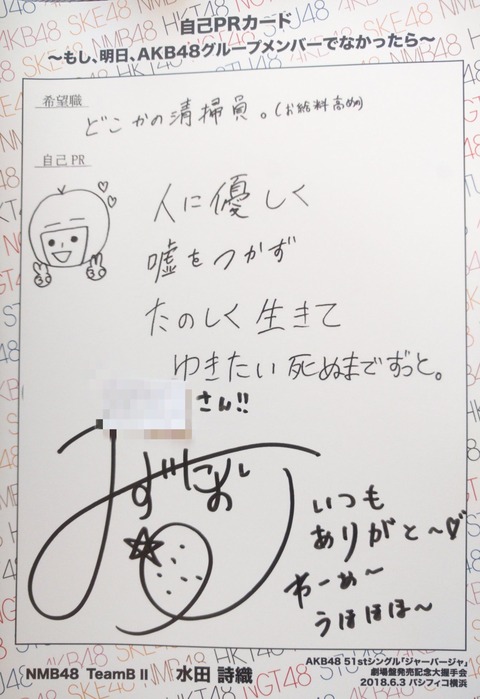 自己PRカード
～もし、明日、AKB48グループメンバーでなかったら～
希望職
どこかの清掃員。(お給料高め)
自己PR
人に優しく
嘘をつかず
たのしく生きて
ゆきたい死ぬまでずっと。
さん!!
ずにお
いつも
ありがと～♡
わーぬ～
うほほほ～
NMB48 TeamBⅡ 水田 詩織
AKB48 51stシングル「ジャーバージャ」
劇場盤発売記念大握手会
2018.6.3 パシフィコ横浜